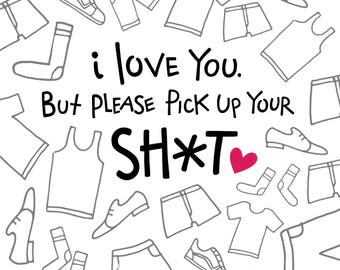 i LOVE YOU.
BUT PLEASE PiCK UP YOUR
SH*T